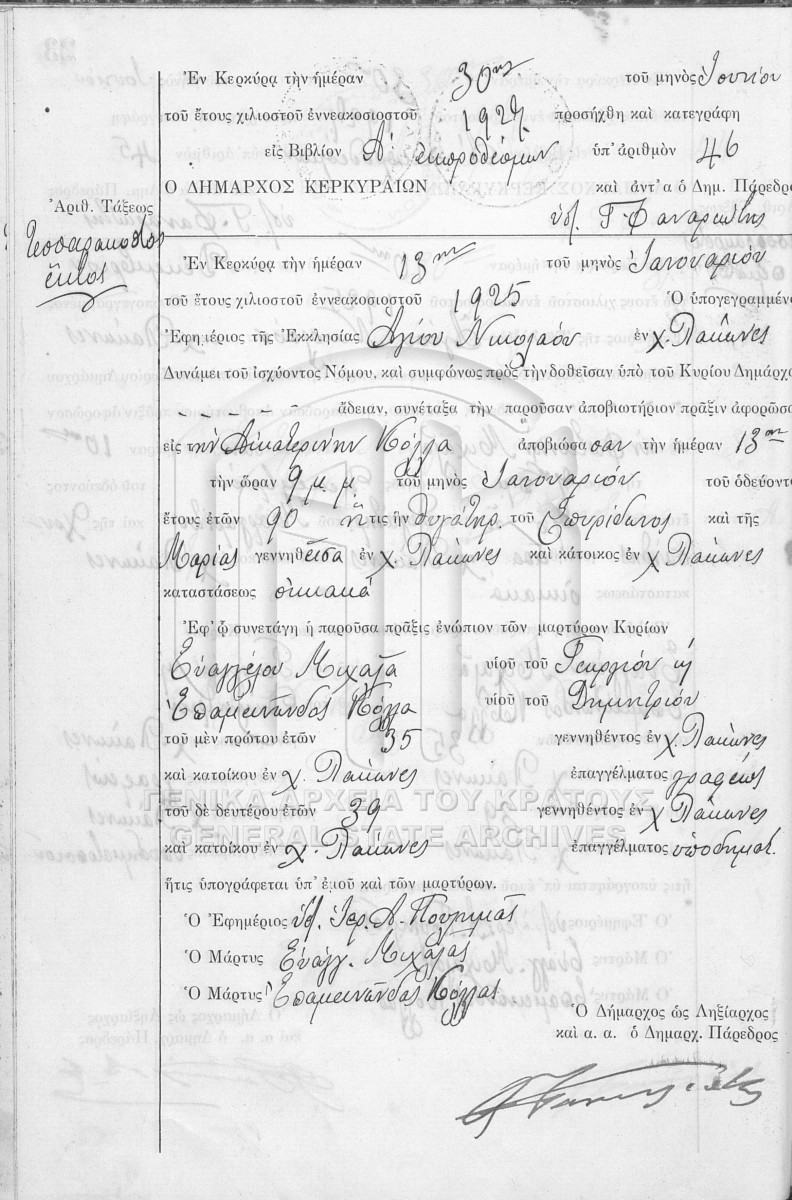 Ἐν Κερκύρᾳ τὴν ἡμέραν 30ην τοῦ μηνὸς Ἰουνίου
τοῦ ἔτους χιλιοστοῦ ἐννεακοσιοστοῦ 1927 προσήχθη καὶ κατεγράφη
εἰς Βιβλίον Α' ἐκπροθέσμων ὑπ' ἀριθμὸν 46
Ο ΔΗΜΑΡΧΟΣ ΚΕΡΚΥΡΑΙΩΝ καὶ ἀντ' α ὁ Δημ. Πάρεδρο
Ἀριθ. Τάξεως
Τεσσαρακοστὸς
ἕκτος
Ἐν Κερκύρᾳ τὴν ἡμέραν 13ην τοῦ μηνὸς Ἰανουαρίου
τοῦ ἔτους χιλιοστοῦ ἐννεακοσιοστοῦ 1925 Ὁ ὑπογεγραμμένο
Ἐφημέριος τῆς Ἐκκλησίας Ἁγίου Νικολάου ἐν χ. Λάκωνες
Δυνάμει τοῦ ἰσχύοντος Νόμου, καὶ συμφώνως πρὸς τὴν δοθεῖσαν ὑπὸ τοῦ Κυρίου Δημάρχο
– – – – – ἄδειαν, συνέταξα τὴν παροῦσαν ἀποβιωτήριον πρᾶξιν ἀφορῶσα
εἰς τὴν Αἰκατερίνην Κόλλα ἀποβιώσασαν τὴν ἡμέραν 13ην
τὴν ὥραν 9 μ.μ. τοῦ μηνὸς Ἰανουαρίου τοῦ ὁδεύοντο
ἔτους ἐτῶν 90 ἥτις ἦν θυγάτηρ τοῦ Σπυρίδωνος καὶ τῆς
Μαρίας γεννηθεῖσα ἐν χ Λάκωνες καὶ κάτοικος ἐν χ Λάκωνες
καταστάσεως οἰκιακά
Ἐφ' ᾧ συνετάγη ἡ παροῦσα πρᾶξις ἐνώπιον τῶν μαρτύρων Κυρίων
Εὐαγγέλου Μιχαλᾶ υἱοῦ τοῦ Γεωργίου ϗ
Ἐπαμεινώνδας Κόλλα υἱοῦ τοῦ Δημητρίου
τοῦ μὲν πρώτου ἐτῶν 35 γεννηθέντος ἐν χ. Λάκωνες
καὶ κατοίκου ἐν χ. Λάκωνες ἐπαγγέλματος γραφέως
ΓΕΝΙΚΑ ΑΡΧΕΙΑ ΤΟΥ ΚΡΑΤΟΥΣ
τοῦ δὲ δευτέρου ἐτῶν 39 γεννηθέντος ἐν χ Λάκωνες
GENERAL STATE ARCHIVES
καὶ κατοίκου ἐν χ. Λάκωνες ἐπαγγέλματος ὑποδηματ.
ἥτις ὑπογράφεται ὑπ' ἐμοῦ καὶ τῶν μαρτύρων.
Ὁ Ἐφημέριος Ἱερ. Α.
Ὁ Μάρτυς Εὐάγγ. Μιχαλᾶς
Ὁ Μάρτυς Ἐπαμεινώνδας Κόλλας
Ὁ Δήμαρχος ὡς Ληξίαρχος
καὶ α. α. ὁ Δημαρχ. Πάρεδρος